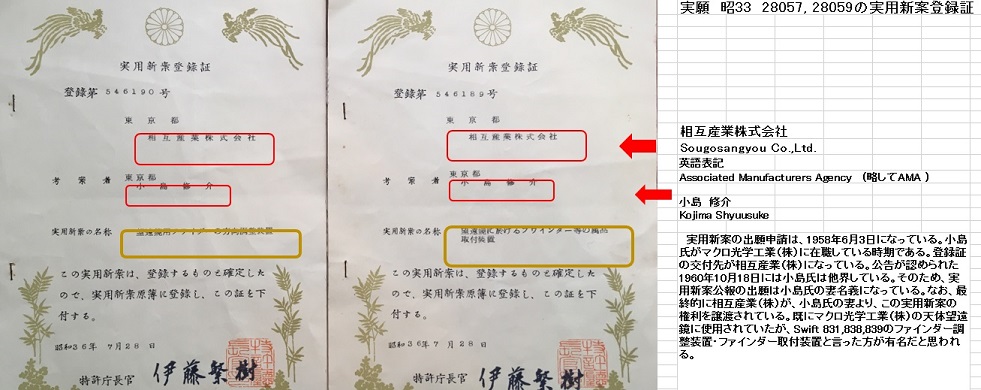 実願 昭33 28057, 28059の実用新案登録証
実用新案登録証
登録第 546190 号
東京都
相互産業株式会社
考案者 東京都
小島修介
実用新案の名称
この実用新案は、登録するものと確定した
ので、実用新案原簿に登録し、この証を下
付する。
昭和36年 7月28日
特許庁長官 伊藤繁樹
実用新案登録証
登録第 546189 号
東京都
相互産業株式会社
考案者 東京都
小島修介
実用新案の名称
取付装置
この実用新案は、登録するものと確定した
ので、実用新案原簿に登録し、この証を下
付する。
昭和36年 7月28日
特許庁長官 伊藤繁樹
相互産業株式会社
Sougosangyou Co.,Ltd.
英語表記
Associated Manufacturers Agency （略してAMA ）
小島 修介
Kojima Shyuusuke
実用新案の出願申請は、1958年6月3日になっている。小島
氏がマクロ光学工業（株）に在職している時期である。登録証
の交付先が相互産業（株）になっている。公告が認められた
1960年10月18日には小島氏は他界している。そのため、実
用新案公報の出願は小島氏の妻名義になっている。なお、最
終的に相互産業（株）が、小島氏の妻より、この実用新案の
権利を譲渡されている。既にマクロ光学工業（株）の天体望遠
鏡に使用されていたが、Swift 831,838,839のファインダー調
整装置・ファインダー取付装置と言った方が有名だと思われ
る。